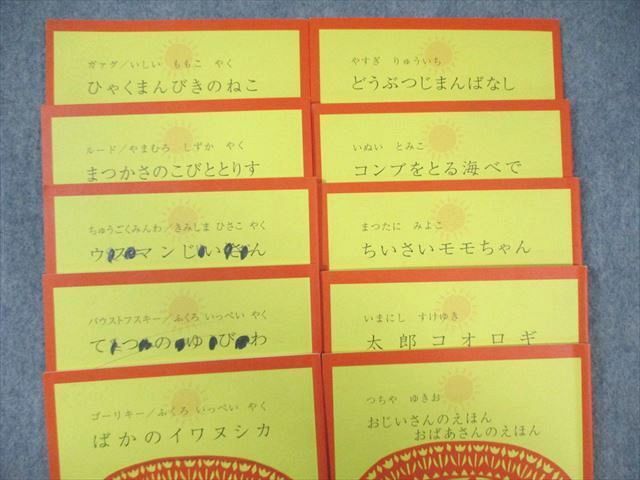 ガアグ/いしい ももこ やく
ひゃくまんびきのねこ
ルード/やまむろ しずか やく
まつかさのこびととりす
ちゅうごくみんわ/きみしま ひさこ やく
パウストフスキー/ふくろ いっぺい やく
ゴーリキー/ふくろ いっぺい やく
ばかのイワヌシカ
やすぎ りゅういち
どうぶつじまんばなし
いぬい とみこ
コンブをとる海べで
まつたに みよこ
ちいさいモモちゃん
いまにし すけゆき
太郎コオロギ
つちや ゆきお
おじいさんのえほん
おばあさんのえほん